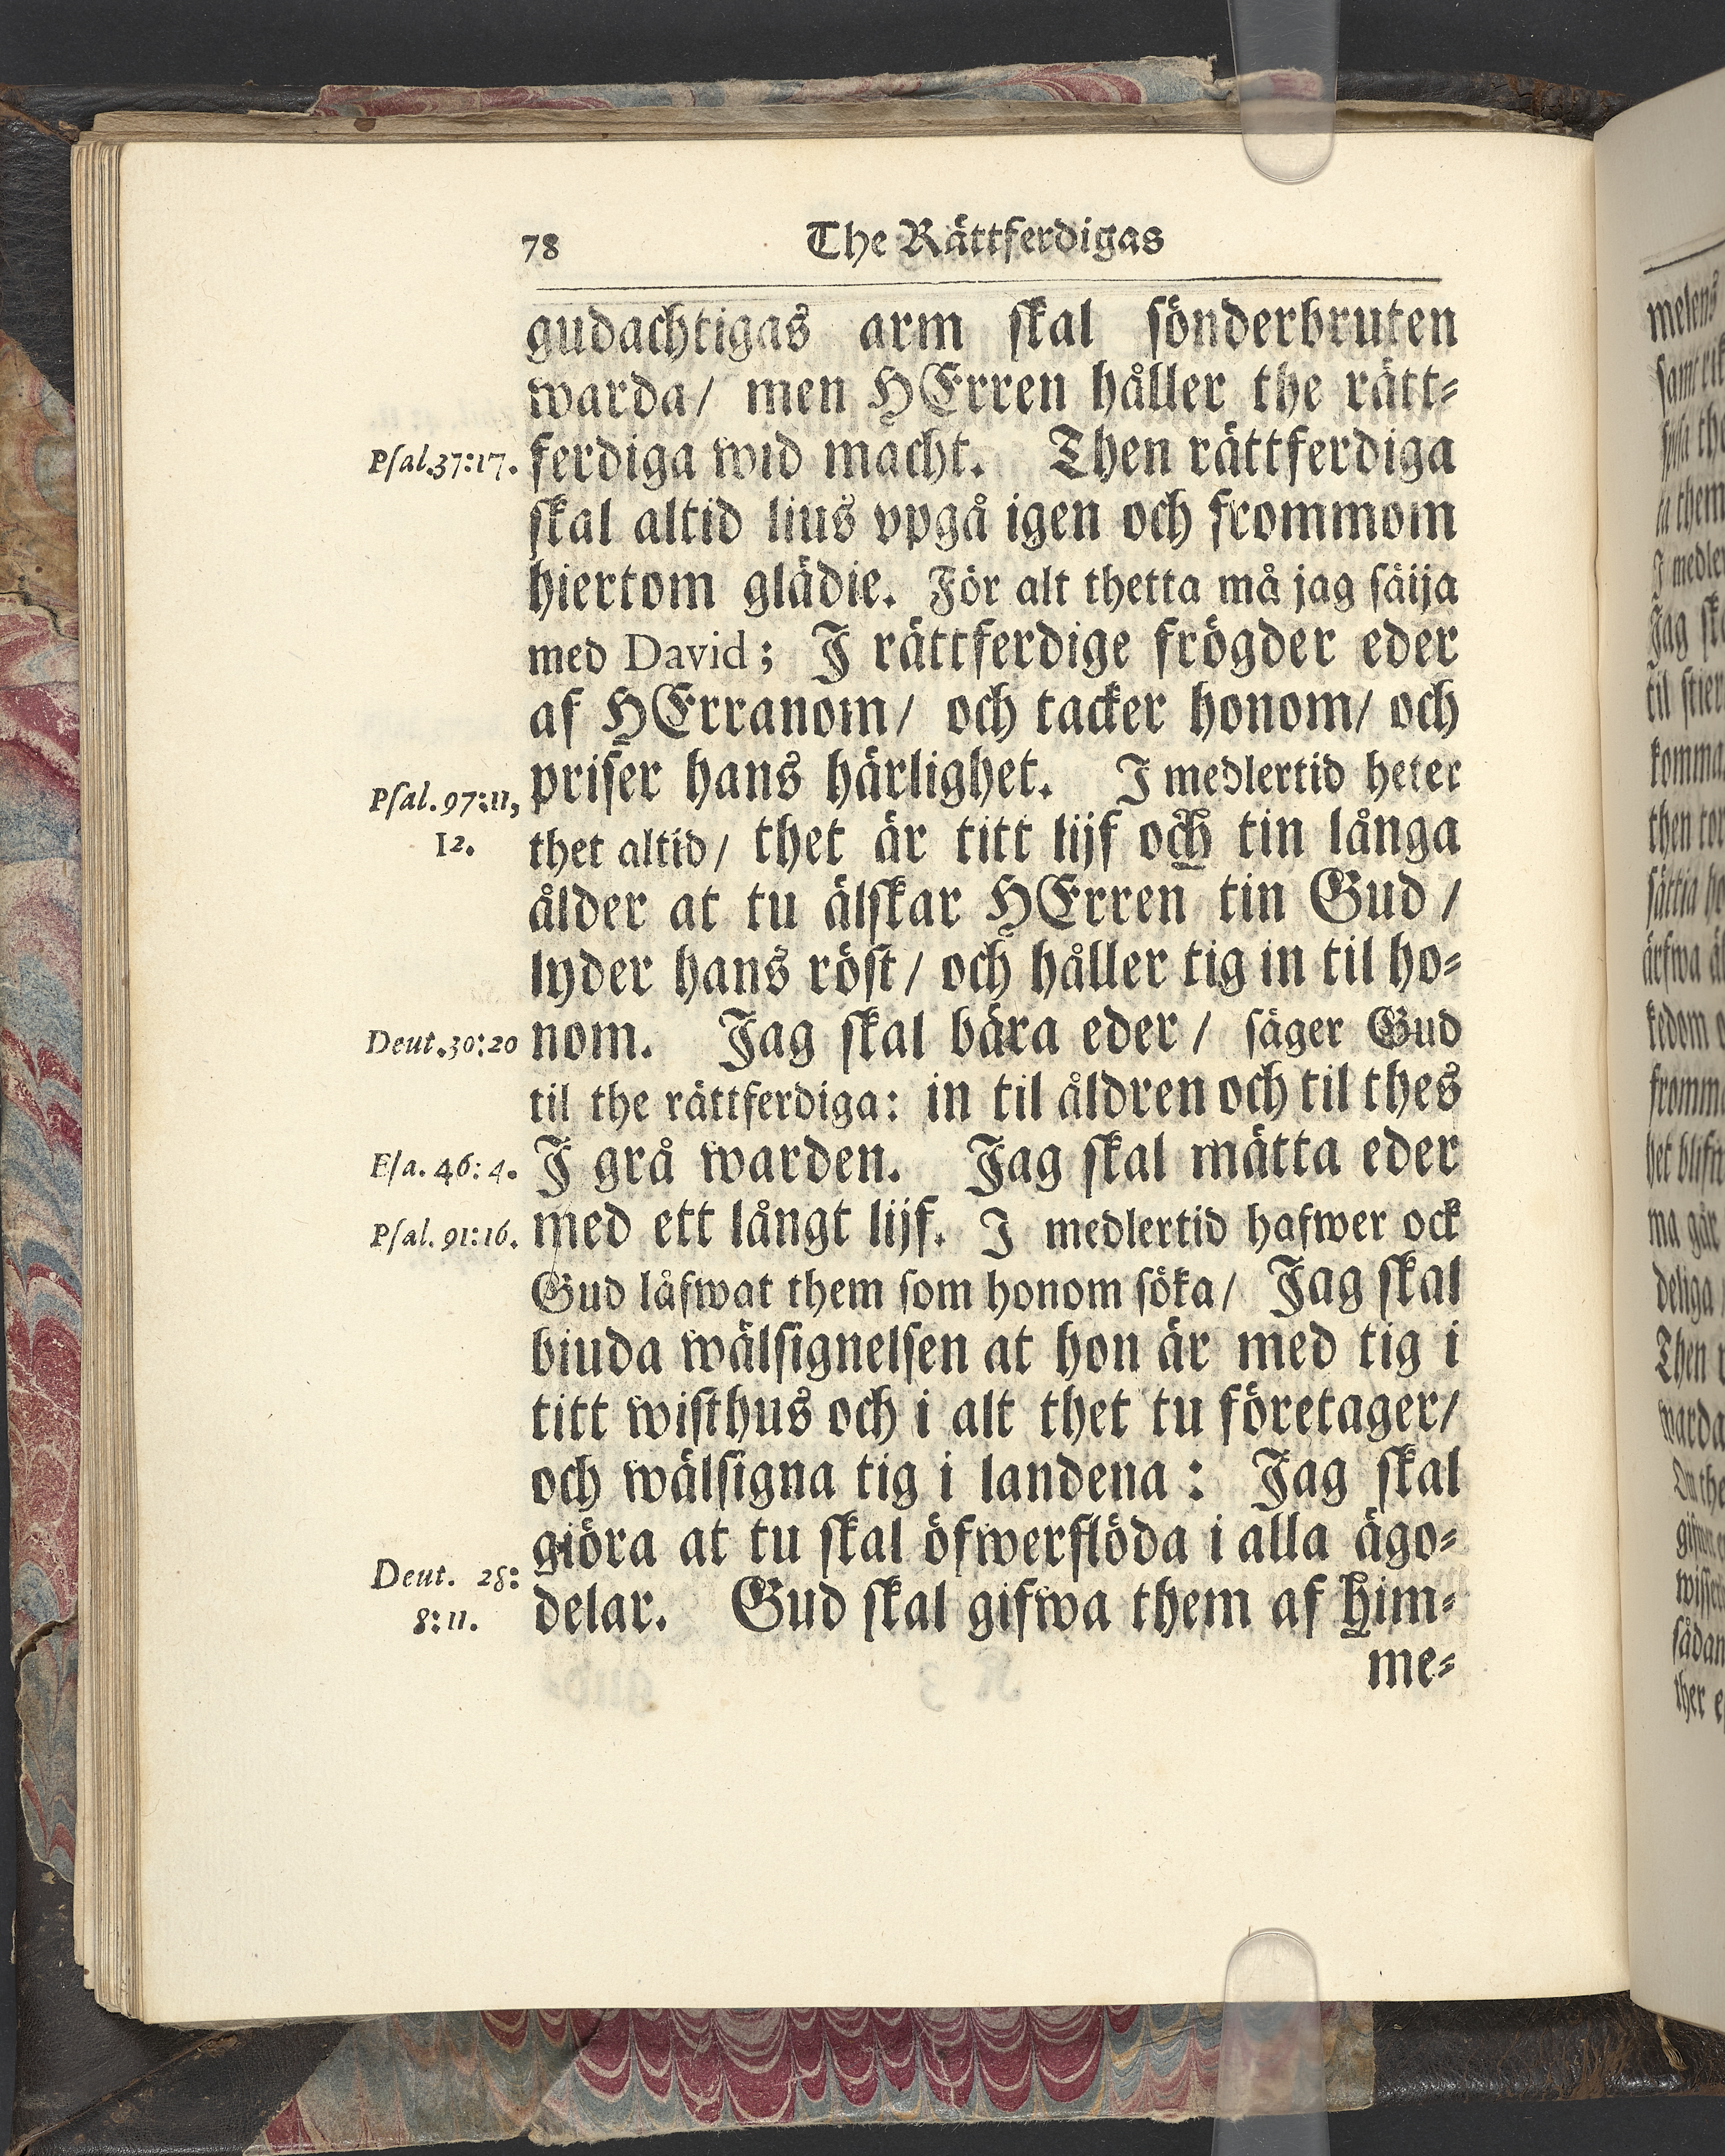 78 The Rättferdigas
gudachtigas arm skal sönderbruten
warda/ men HErren håller the rätt-
Psal.37:17. ferdiga wid macht. Then rättferdiga
skal altid lius vpgå igen och frommom
hiertom glädie. För alt thetta må jag säija
med David; J rättferdige frögder eder
af HErranom/ och tacker honom/ och
Psal. 97:11, priser hans härlighet. J medlertid heter
12. thet altid/ thet är titt lijf och tin långa
ålder at tu älskar HErren tin Gud/
lyder hans röst/ och håller tig in til ho-
Deut.30:20 nom. Jag skal bära eder/ säger Gud
til the rättferdiga: in til åldren och til thes
Esa. 46:4. J grå warden. Jag skal mätta eder
Psal. 91:16. med ett långt lijf. J medlertid hafwer ock
Gud låfwat them som honom söka/ Jag skal
biuda wälsignelsen at hon är med tig i
titt wisthus och i alt thet tu företager/
och wälsigna tig i landena: Jag skal
giöra at tu skal öfwerflöda i alla ägo-
Deut. 28:
8:11. delar. Gud skal gifwa them af him-
me-